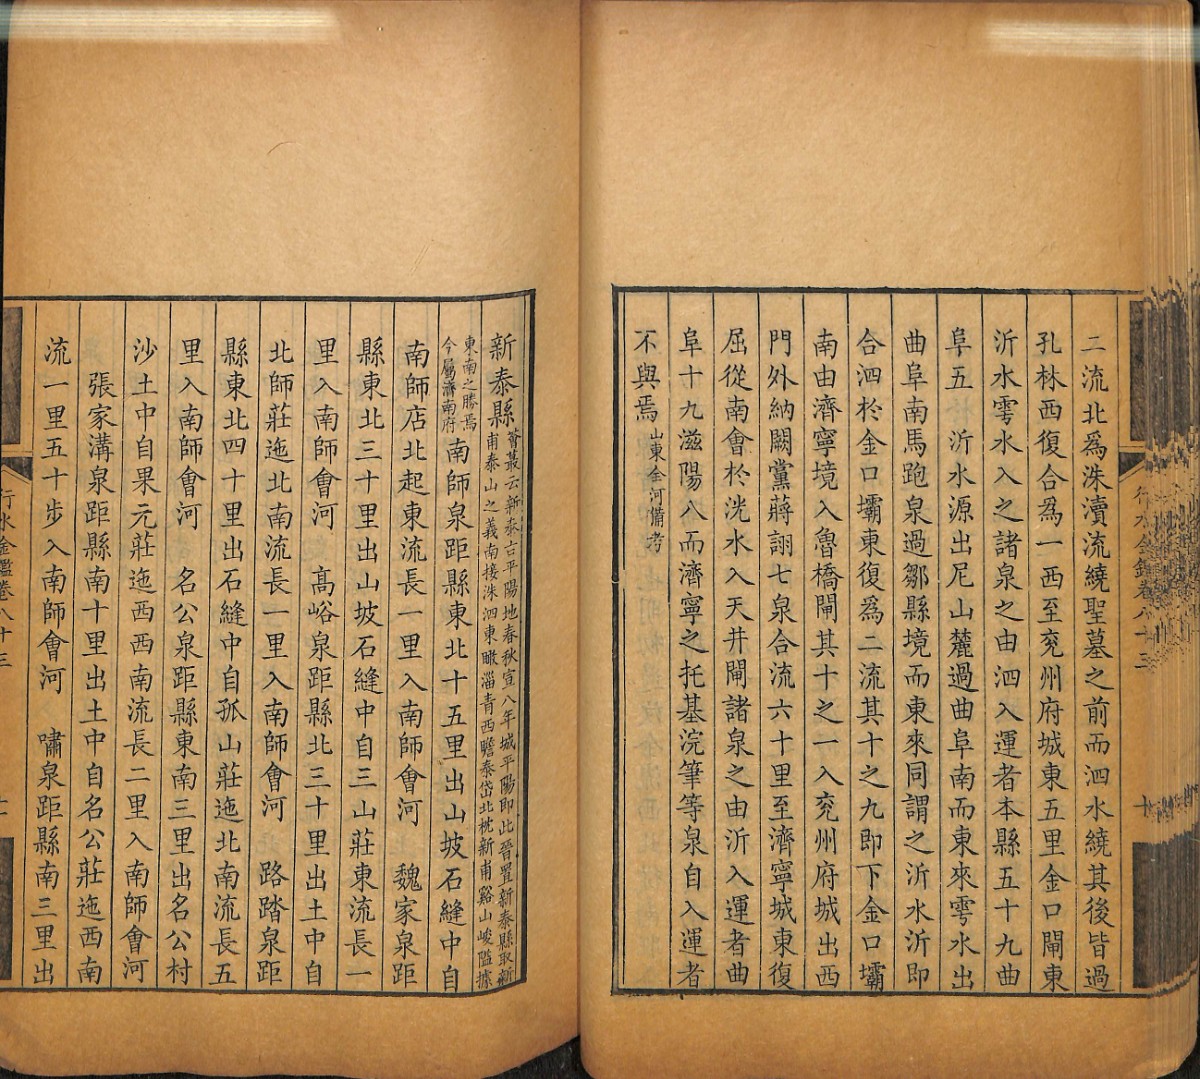 二流北爲洙瀆流繞聖墓之前而泗水繞其後皆過
孔林西復合爲一西至兖州府城東五里金口閘東
沂水雩水入之諸泉之由泗入運者本縣五十九曲
阜五　沂水源出尼山麓過曲阜南而東來雩水出
曲阜南馬跑泉過鄒縣境而東來同謂之沂水沂即
合泗於金口壩東復爲二流其十之九即下金口壩
南由濟寧境入魯橋閘其十之一入兖州府城出西
門外納闕黨蔣詡七泉合流六十里至濟寧城東復
屈從南會於洸水入天井閘諸泉之由沂入運者曲
阜十九滋陽八而濟寧之托基浣筆等泉自入運者
不與焉山東全河備考
新泰縣薈叢云新泰古平陽地春秋宣八年城平陽即此晉置新泰縣取新
甫泰山之義南接洙泗東瞰淄青西瞻泰岱北枕新甫谿山峻隘據
東南之勝焉
今屬濟南府南師泉距縣東北十五里出山坡石縫中自
南師店北起東流長一里入南師會河　魏家泉距
縣東北三十里出山坡石縫中自三山莊東流長一
里入南師會河　高峪泉距縣北三十里出土中自
北師莊迤北南流長一里入南師會河　路踏泉距
縣東北四十里出石縫中自孤山莊迤北南流長五
里入南師會河　名公泉距縣東南三里出名公村
沙土中自果元莊迤西西南流長二里入南師會河
張家溝泉距縣南十里出土中自名公莊迤西南
流一里五十步入南師會河　嘯泉距縣南三里出
行水金鑑卷八十三